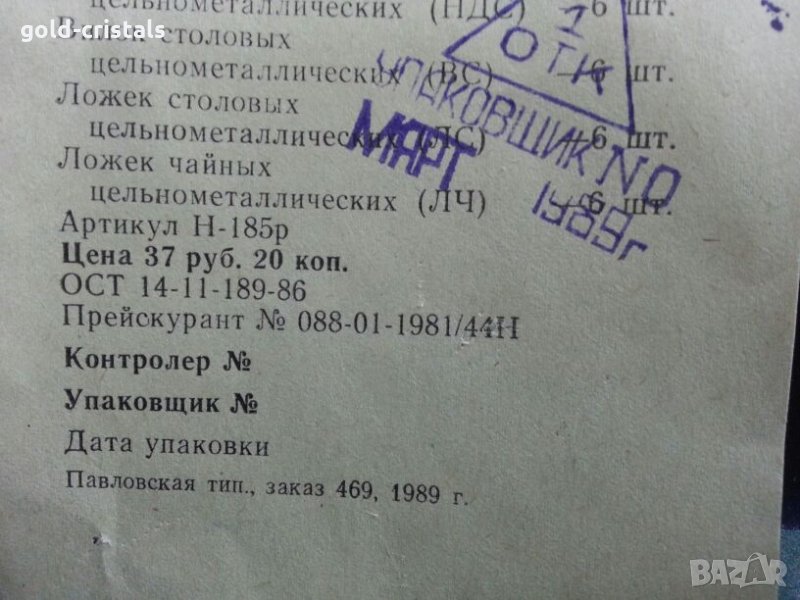 цельнометаллических (НДС) —6 шт.
gold-cristals
Вилок столовых
цельнометаллических (ВС) —6 шт.
Ложек столовых
цельнометаллических (ЛС) —6 шт.
Ложек чайных
цельнометаллических (ЛЧ) —6 шт.
1
ОТК
УПАКОВЩИК NO
МАРТ 1989г
Артикул Н-185р
Цена 37 руб. 20 коп.
ОСТ 14-11-189-86
Прейскурант № 088-01-1981/44Н
Контролер №
Упаковщик №
Дата упаковки
Павловская тип., заказ 469, 1989 г.
BAZAR